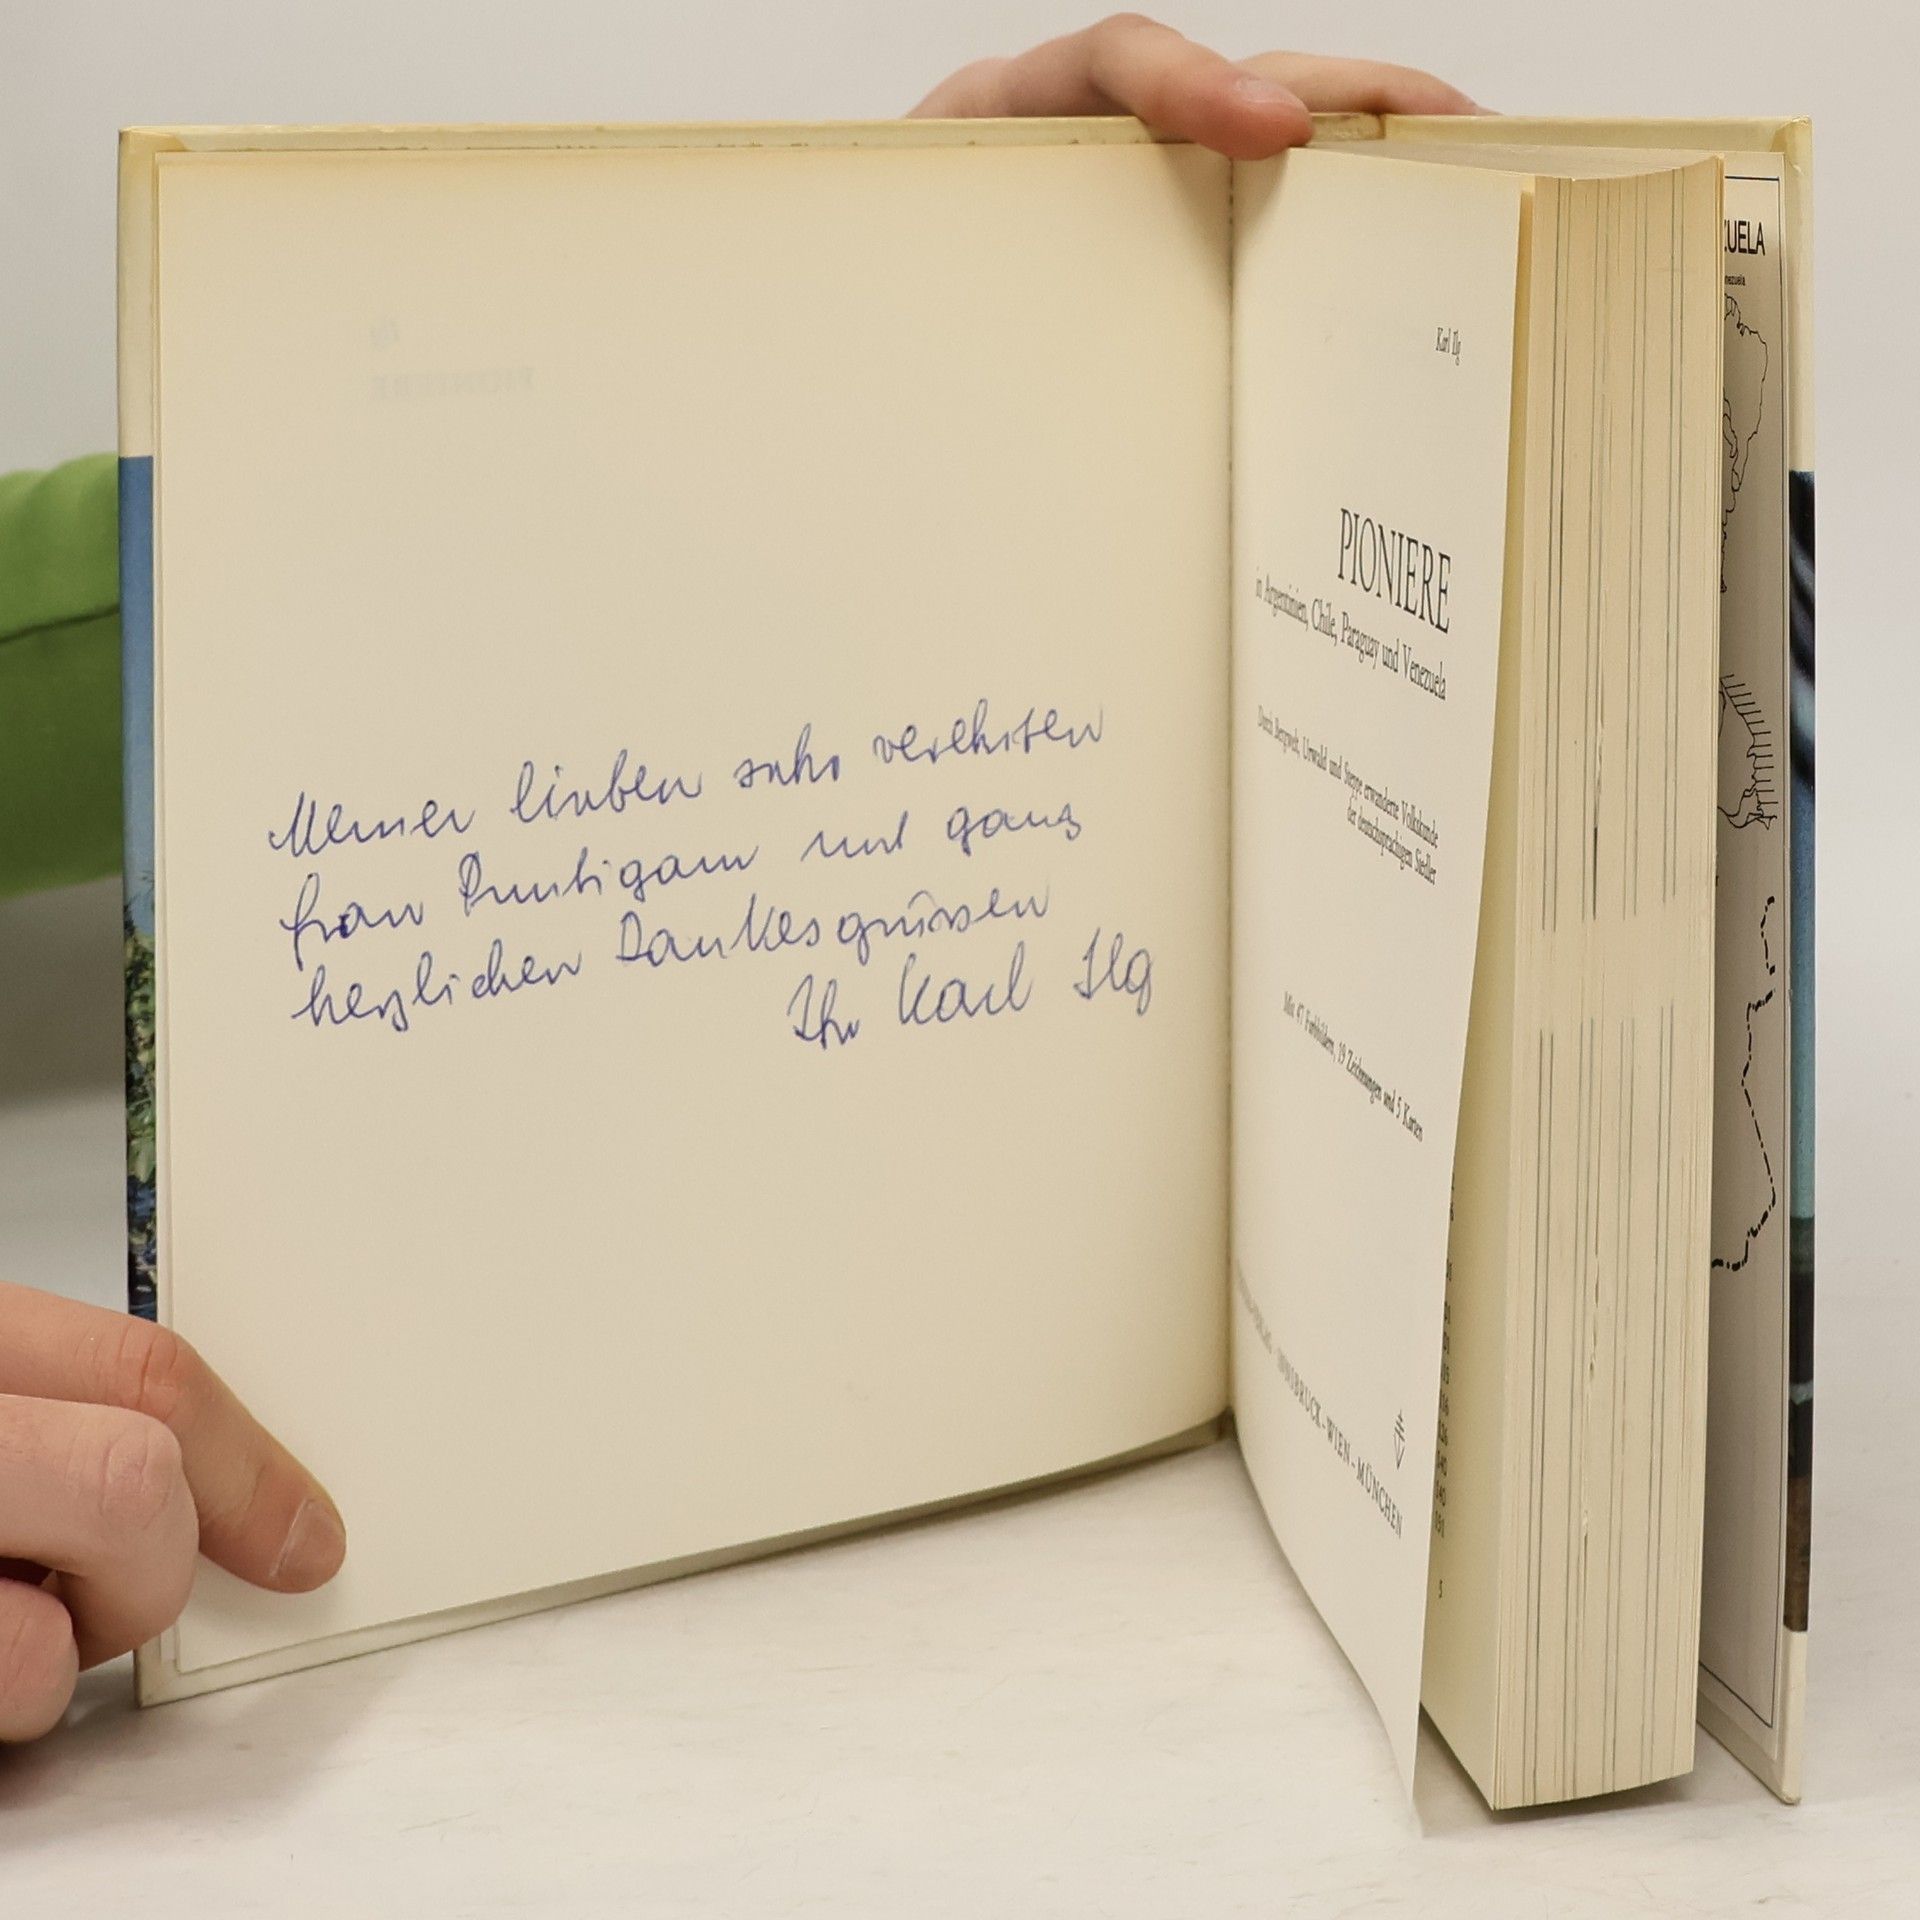 Meiner lieben sehr verehrten
Frau Puntigam mit ganz
herzlichen Dankesgrüssen
Ihr Karl Ilg
Karl Ilg
PIONIERE
in Argentinien, Chile, Paraguay und Venezuela
Durch Bergwelt, Urwald und Steppe erwanderte Volkskunde
der deutschsprachigen Siedler
Mit 47 Farbbildern, 19 Zeichnungen und 5 Karten
INNSBRUCK – WIEN – MÜNCHEN
5
ZUELA
nezuela